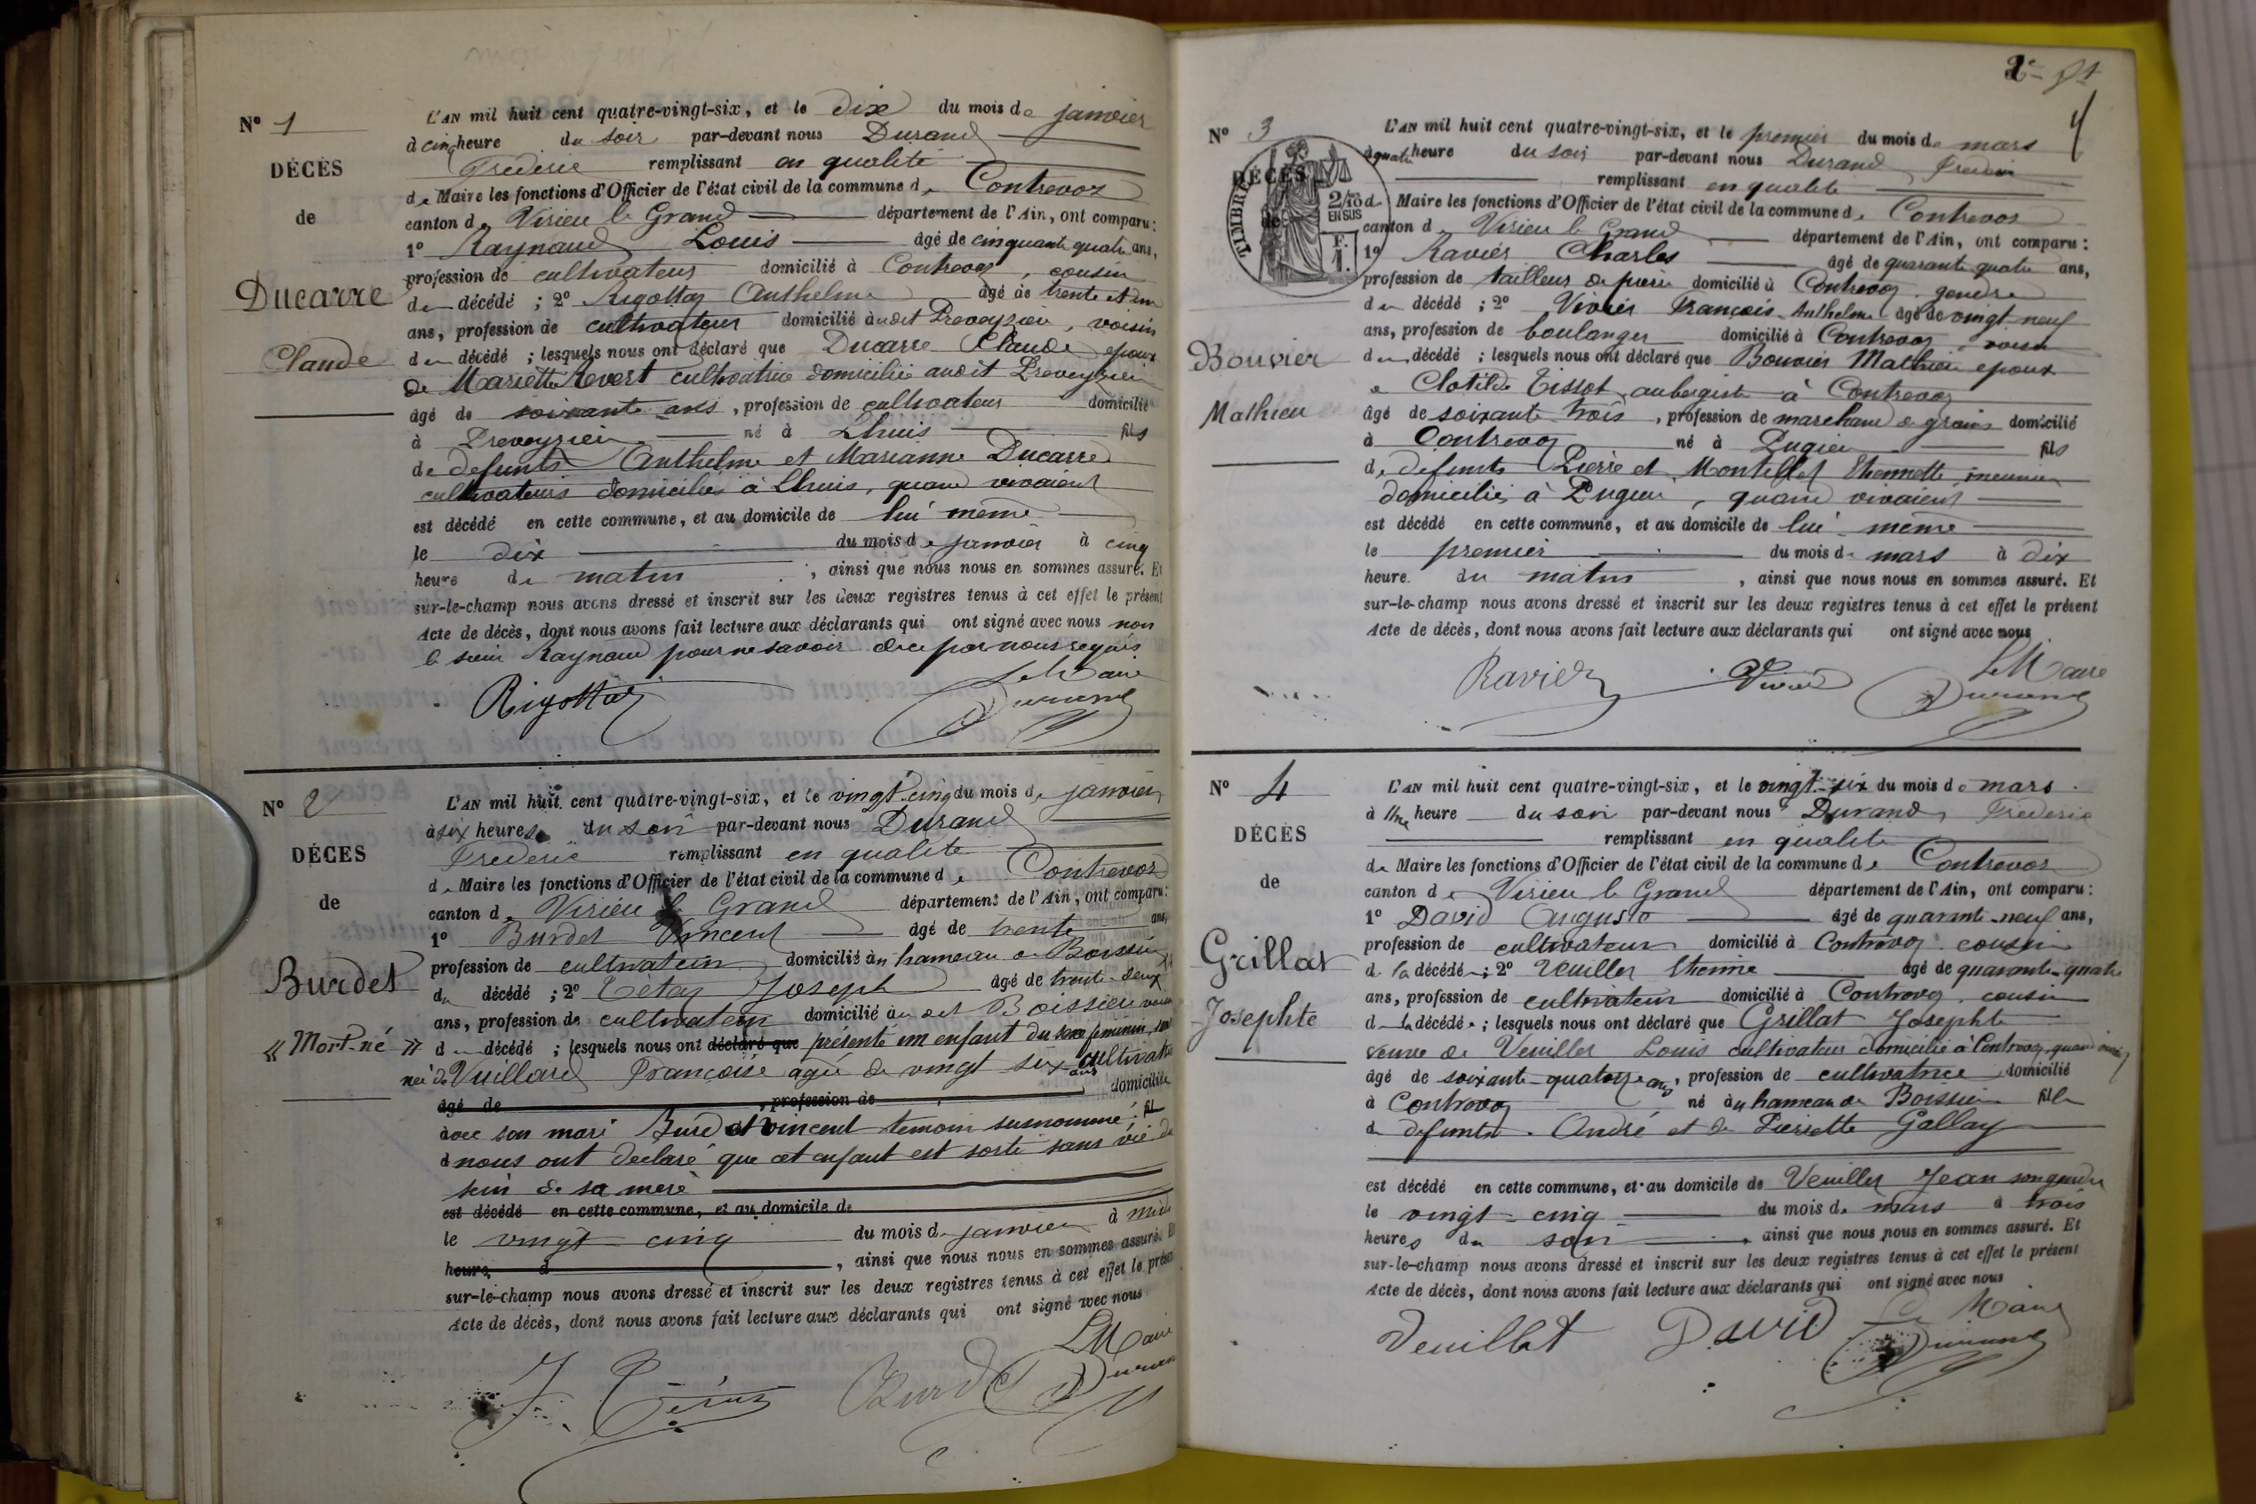 Nº 1
DÉCÈS
de
Ducarre
Claude
L'AN mil huit cent quatre-vingt-six, et le dix du mois de janvier
à cinq heure du soir par-devant nous Durand
Frederic remplissant en qualité
de Maire les fonctions d'Officier de l'état civil de la commune de Contrevoz
canton de Virieu le Grand département de l'Ain, ont comparu :
1º Raynaud Louis âgé de cinquante quatre ans,
profession de cultivateur domicilié à Contrevoz, cousin
du décédé ; 2º Rigottaz Anthelme âgé de trente et un
ans, profession de cultivateur domicilié audit Preveyzieu, voisin
du décédé ; lesquels nous ont déclaré que Ducarre Claude epoux
de Mariette Revert cultivatrice domiciliée audit Preveyzieu
âgé de soixante ans, profession de cultivateur domicilié
à Preveyzieu né à Lhuis fils
de defunts Anthelme et Marianne Ducarre
cultivateurs domiciliés à Lhuis, quand vivaient
est décédé en cette commune, et au domicile de lui même
le dix du mois de janvier à cinq
heure du matin, ainsi que nous nous en sommes assuré. Et
sur-le-champ nous avons dressé et inscrit sur les deux registres tenus à cet effet le présent
Acte de décès, dont nous avons fait lecture aux déclarants qui ont signé avec nous non
le sieur Raynaud pour ne savoir de ce par nous requis
Le Maire
Rigottaz Durand
Nº 2
DÉCES
de
Burdet
« Mort-né »
L'AN mil huit cent quatre-vingt-six, et le vingt cinq du mois de janvier
à six heures du soir par-devant nous Durand
Frederic remplissant en qualite
de Maire les fonctions d'Officier de l'état civil de la commune de Contrevoz
canton de Virieu le Grand département de l'Ain, ont comparu :
1º Burdet Vincent âgé de trente ans,
profession de cultivateur domicilié au hameau de Boissieu
du décédé ; 2º Tetaz Joseph âgé de trente-deux
ans, profession de cultivateur domicilié au dit Boissieu voisin
du décédé ; lesquels nous ont déclaré que présenté un enfant du sexe feminin
née de Vuillard Françoise agée de vingt six ans cultivatrice
âgé de, profession de domicilié
avec son mari Burdet Vincent temoin susnommé, fil
à nous ont declaré que cet enfant est sorti sans vie du
sein de sa mere
est décédé en cette commune, et au domicile de
le vingt cinq du mois de janvier à midi
heure d, ainsi que nous nous en sommes assuré. Et
sur-le-champ nous avons dressé et inscrit sur les deux registres tenus à cet effet le présent
Acte de décès, dont nous avons fait lecture aux déclarants qui ont signé avec nous
Le Maire
Burdet Durand
4
Nº 3
DÉCÈS
de
TIMBRE
2/10
EN SUS
F.
1.
Bouvier
Mathieu
L'AN mil huit cent quatre-vingt-six, et le premier du mois de mars
à quatre heure du soir par-devant nous Durand Frederic
remplissant en qualite
de Maire les fonctions d'Officier de l'état civil de la commune de Contrevoz
canton de Virieu le Grand département de l'Ain, ont comparu :
1º Ravier Charles âgé de quarante quatre ans,
profession de tailleur de pierre domicilié à Contrevoz gendre
du décédé ; 2º Vivier François-Anthelme âgé de vingt-neuf
ans, profession de boulanger domicilié à Contrevoz, voisin
du décédé ; lesquels nous ont déclaré que Bouvier Mathieu epoux
de Clotilde Tissot, aubergiste à Contrevoz
âgé de soixante trois, profession de marchand de grains domicilié
à Contrevoz né à Pugieu fils
de defunts Pierre et Montillet Etiennette, meunier
domiciliés à Pugieu, quand vivaient
est décédé en cette commune, et au domicile de lui-même
le premier du mois de mars à dix
heure du matin, ainsi que nous nous en sommes assuré. Et
sur-le-champ nous avons dressé et inscrit sur les deux registres tenus à cet effet le présent
Acte de décès, dont nous avons fait lecture aux déclarants qui ont signé avec nous
Le Maire
Ravier Vivier Durand
Nº 4
DÉCÈS
de
Grillat
Josephte
L'AN mil huit cent quatre-vingt-six, et le vingt-six du mois de mars
à une heure du soir par-devant nous Durand Frederic
remplissant en qualite
de Maire les fonctions d'Officier de l'état civil de la commune de Contrevoz
canton de Virieu le Grand département de l'Ain, ont comparu :
1º David Auguste âgé de quarante-neuf ans,
profession de cultivateur domicilié à Contrevoz cousin
de la décédée ; 2º Veuillet Etienne âgé de quarante-quatre
ans, profession de cultivateur domicilié à Contrevoz, cousin
de la décédée ; lesquels nous ont déclaré que Grillat Josephte
veuve de Veuillet Louis cultivateur domicilié à Contrevoz, quand vivait
âgé de soixante-quatorze ans, profession de cultivatrice domicilié
à Contrevoz né au hameau de Boissieu fille
de defunts André et de Pierrette Gallay
est décédé en cette commune, et au domicile de Veuillet Jean son gendre
le vingt-cinq du mois de mars à trois
heures du soir, ainsi que nous nous en sommes assuré. Et
sur-le-champ nous avons dressé et inscrit sur les deux registres tenus à cet effet le présent
Acte de décès, dont nous avons fait lecture aux déclarants qui ont signé avec nous
Le Maire
Veuillet David Durand